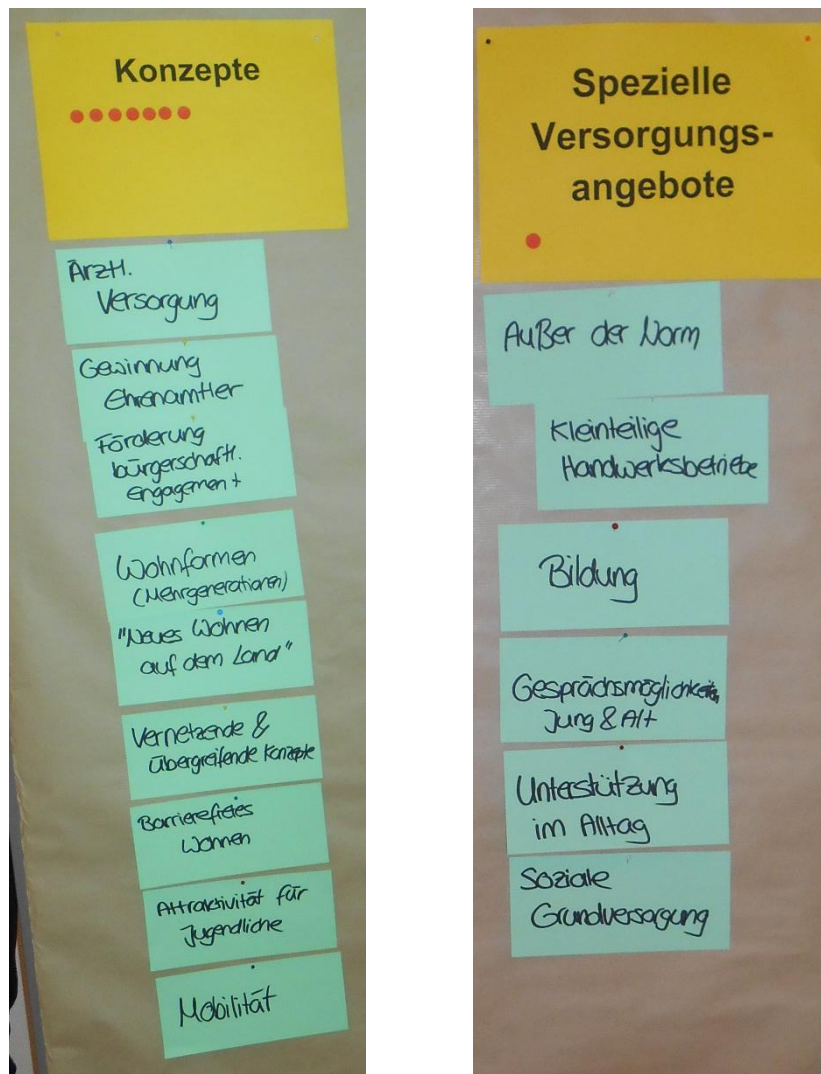 Konzepte
Ärztl.
Versorgung
Gewinnung
Ehrenamtler
Förderung
bürgerschaftl.
engagement
Wohnformen
(Mehrgenerationen)
"Neues Wohnen
auf dem Land"
Vernetzende &
übergreifende Konzepte
Barrierefreies
Wohnen
Attraktivität für
Jugendliche
Mobilität
Spezielle
Versorgungs-
angebote
Außer der Norm
Kleinteilige
Handwerksbetriebe
Bildung
Gesprächsmöglichkeiten
Jung & Alt
Unterstützung
im Alltag
Soziale
Grundversorgung